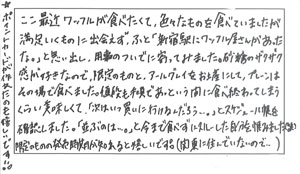 ここ最近ワッフルが食べたくて、色々なものを食べていましたが
満足いくものに出会えず、ふと「新宿駅にワッフル屋さんがあった
な。」と思い出し、用事のついでに寄ってみました。砂糖のザクザク
感が好きなので、限定のものと、アールグレイをお店にして、プレーンは
その場で食べました。値段も手頃であっという間に食べ終わってしまう
くらい美味しくて「次はいつ買いに行けるんだろう…。」とスケジュール帳を
確認しました。「並ぶのは…。」と今まで食べずにスルーした自分を恨みました(笑)
限定のものの発売時期が知れると嬉しいです(関東に住んでいないので…)
ポイントカードが作れたのも嬉しいです!。